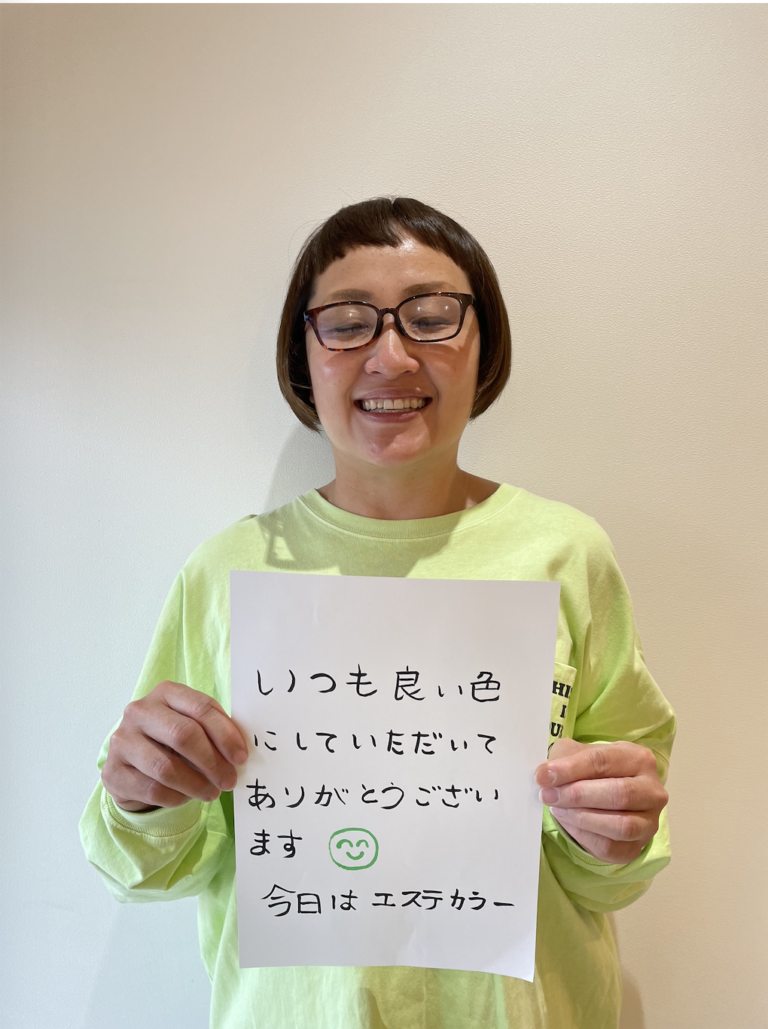 いつも良い色
にしていただいて
ありがとうござい
ます
今日は エステカラー